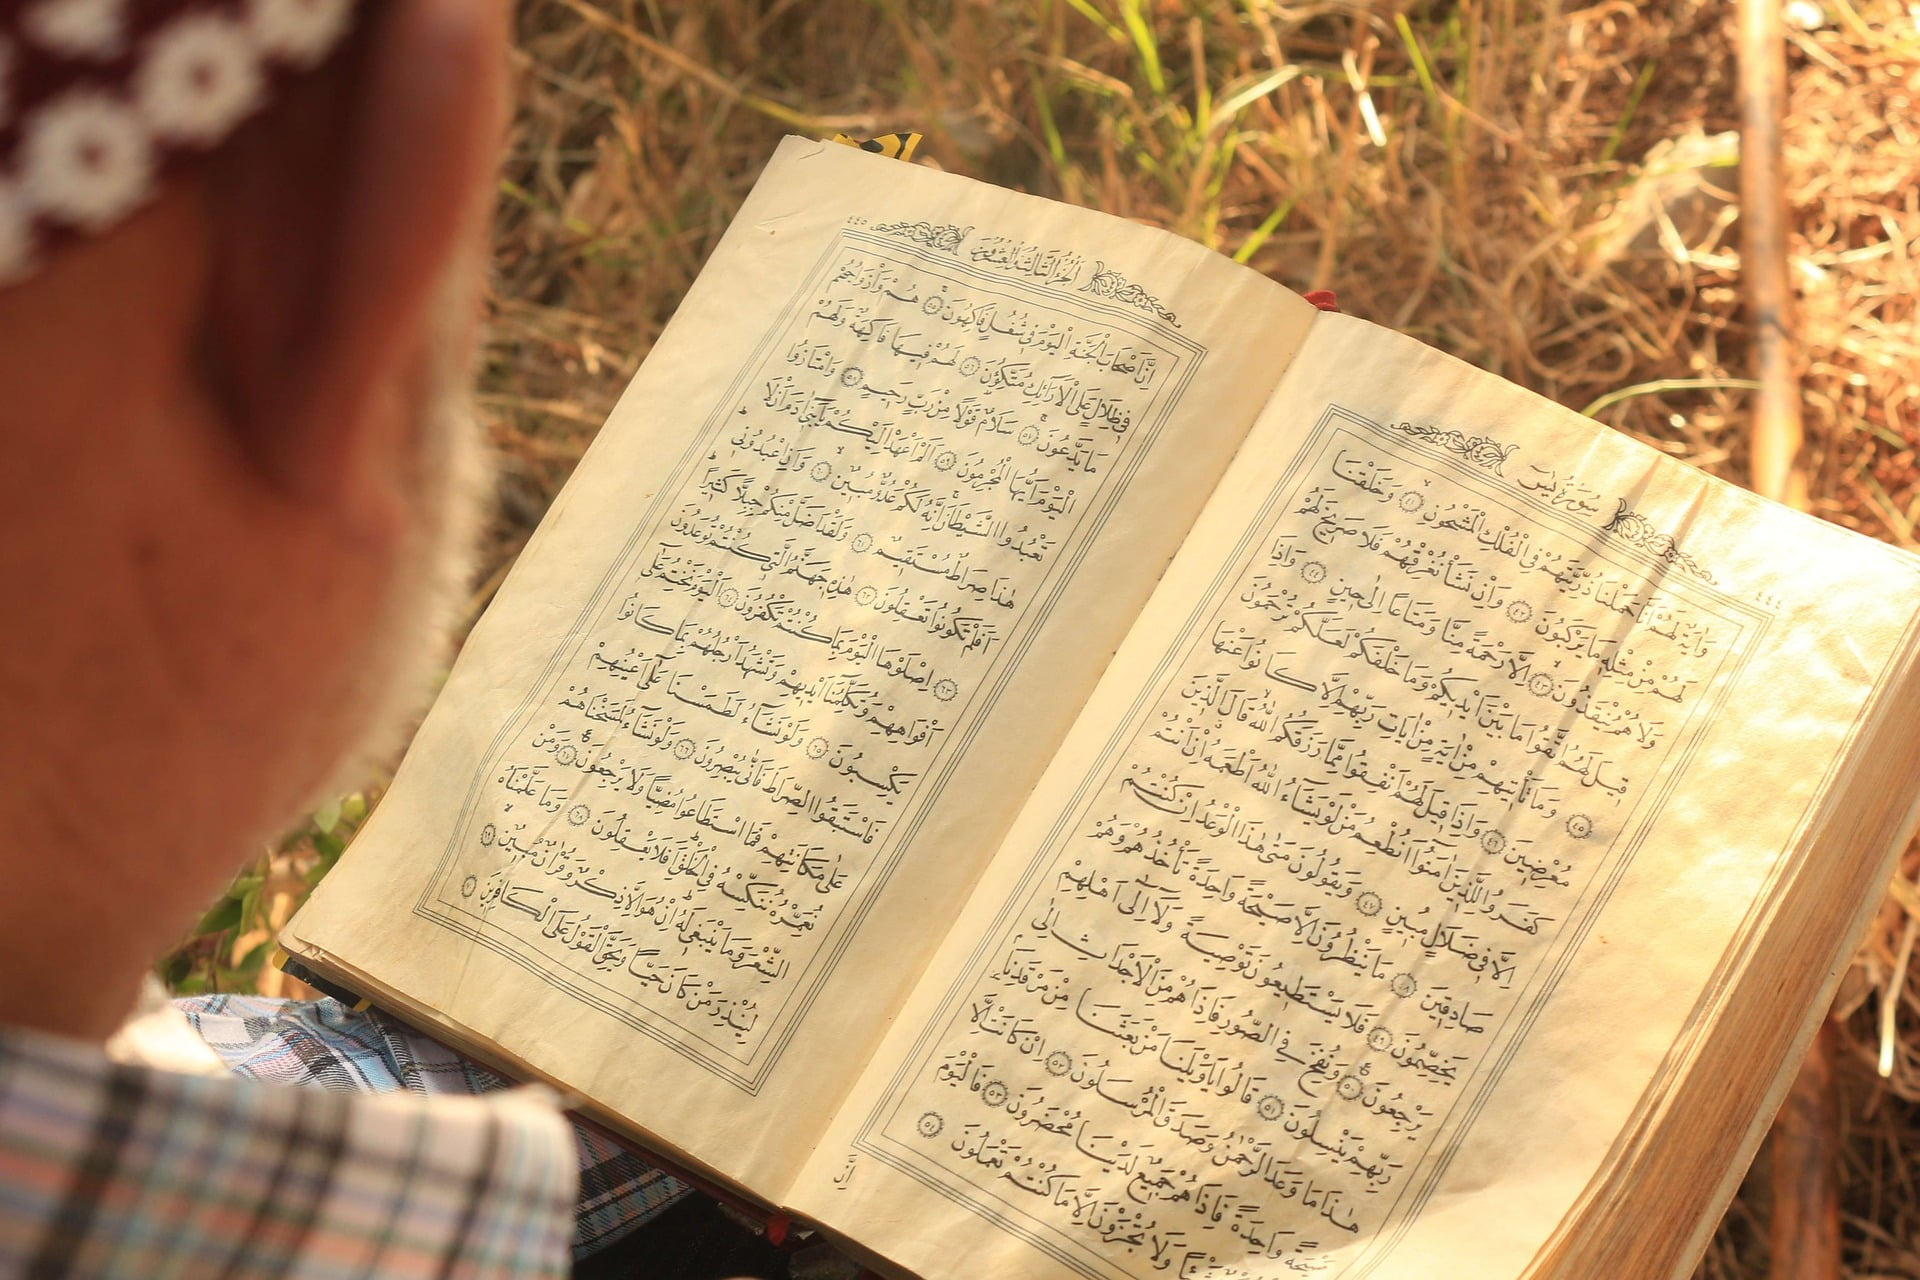 سُورَةُ يٰسٓ ٤٤٤
وَاٰيَةٌ لَهُمْ اَنَّا حَمَلْنَا ذُرِّيَّتَهُمْ فِي الْفُلْكِ الْمَشْحُونِ ٤١ وَخَلَقْنَا
لَهُمْ مِنْ مِثْلِهِ مَا يَرْكَبُونَ ٤٢ وَاِنْ نَشَأْ نُغْرِقْهُمْ فَلَا صَرِيخَ لَهُمْ
وَلَا هُمْ يُنْقَذُونَ ٤٣ اِلَّا رَحْمَةً مِنَّا وَمَتَاعًا اِلٰى حِينٍ ٤٤ وَاِذَا
قِيلَ لَهُمُ اتَّقُوا مَا بَيْنَ اَيْدِيكُمْ وَمَا خَلْفَكُمْ لَعَلَّكُمْ تُرْحَمُونَ
٤٥ وَمَا تَأْتِيهِمْ مِنْ اٰيَةٍ مِنْ اٰيَاتِ رَبِّهِمْ اِلَّا كَانُوا عَنْهَا
مُعْرِضِينَ ٤٦ وَاِذَا قِيلَ لَهُمْ اَنْفِقُوا مِمَّا رَزَقَكُمُ اللّٰهُ قَالَ الَّذِينَ
كَفَرُوا لِلَّذِينَ اٰمَنُوا اَنُطْعِمُ مَنْ لَوْ يَشَاءُ اللّٰهُ اَطْعَمَهُ اِنْ اَنْتُمْ
اِلَّا فِي ضَلَالٍ مُبِينٍ ٤٧ وَيَقُولُونَ مَتٰى هٰذَا الْوَعْدُ اِنْ كُنْتُمْ
صَادِقِينَ ٤٨ مَا يَنْظُرُونَ اِلَّا صَيْحَةً وَاحِدَةً تَأْخُذُهُمْ وَهُمْ
يَخِصِّمُونَ ٤٩ فَلَا يَسْتَطِيعُونَ تَوْصِيَةً وَلَا اِلٰى اَهْلِهِمْ
يَرْجِعُونَ ٥٠ وَنُفِخَ فِي الصُّورِ فَاِذَا هُمْ مِنَ الْاَجْدَاثِ اِلٰى
رَبِّهِمْ يَنْسِلُونَ ٥١ قَالُوا يَا وَيْلَنَا مَنْ بَعَثَنَا مِنْ مَرْقَدِنَا
هٰذَا مَا وَعَدَ الرَّحْمٰنُ وَصَدَقَ الْمُرْسَلُونَ ٥٢ اِنْ كَانَتْ اِلَّا
صَيْحَةً وَاحِدَةً فَاِذَا هُمْ جَمِيعٌ لَدَيْنَا مُحْضَرُونَ ٥٣ فَالْيَوْمَ
شَيْئًا وَلَا تُجْزَوْنَ اِلَّا مَا كُنْتُمْ تَعْمَلُونَ ٥٤
اِنَّ
اَلْجُزْءُ الثَّالِثُ وَالْعِشْرُونَ ٤٤٥
اِنَّ اَصْحَابَ الْجَنَّةِ الْيَوْمَ فِي شُغُلٍ فَاكِهُونَ ٥٥ هُمْ وَاَزْوَاجُهُمْ
فِي ظِلَالٍ عَلَى الْاَرَائِكِ مُتَّكِؤُنَ ٥٦ لَهُمْ فِيهَا فَاكِهَةٌ وَلَهُمْ
مَا يَدَّعُونَ ٥٧ سَلَامٌ قَوْلًا مِنْ رَبٍّ رَحِيمٍ ٥٨ وَامْتَازُوا
الْيَوْمَ اَيُّهَا الْمُجْرِمُونَ ٥٩ اَلَمْ اَعْهَدْ اِلَيْكُمْ يَا بَنِي اٰدَمَ اَنْ لَا
تَعْبُدُوا الشَّيْطَانَ اِنَّهُ لَكُمْ عَدُوٌّ مُبِينٌ ٦٠ وَاَنِ اعْبُدُونِي
هٰذَا صِرَاطٌ مُسْتَقِيمٌ ٦١ وَلَقَدْ اَضَلَّ مِنْكُمْ جِبِلًّا كَثِيرًا
اَفَلَمْ تَكُونُوا تَعْقِلُونَ ٦٢ هٰذِهِ جَهَنَّمُ الَّتِي كُنْتُمْ تُوعَدُونَ
٦٣ اِصْلَوْهَا الْيَوْمَ بِمَا كُنْتُمْ تَكْفُرُونَ ٦٤ اَلْيَوْمَ نَخْتِمُ عَلٰى
اَفْوَاهِهِمْ وَتُكَلِّمُنَا اَيْدِيهِمْ وَتَشْهَدُ اَرْجُلُهُمْ بِمَا كَانُوا
يَكْسِبُونَ ٦٥ وَلَوْ نَشَاءُ لَطَمَسْنَا عَلٰى اَعْيُنِهِمْ
فَاسْتَبَقُوا الصِّرَاطَ فَاَنّٰى يُبْصِرُونَ ٦٦ وَلَوْ نَشَاءُ لَمَسَخْنَاهُمْ
عَلٰى مَكَانَتِهِمْ فَمَا اسْتَطَاعُوا مُضِيًّا وَلَا يَرْجِعُونَ ٦٧ وَمَنْ
نُعَمِّرْهُ نُنَكِّسْهُ فِي الْخَلْقِ اَفَلَا يَعْقِلُونَ ٦٨ وَمَا عَلَّمْنَاهُ
الشِّعْرَ وَمَا يَنْبَغِي لَهُ اِنْ هُوَ اِلَّا ذِكْرٌ وَقُرْاٰنٌ مُبِينٌ ٦٩
لِيُنْذِرَ مَنْ كَانَ حَيًّا وَيَحِقَّ الْقَوْلُ عَلَى الْكَافِرِينَ ٧٠